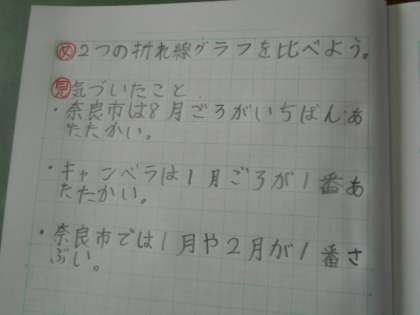 め 2つの折れ線グラフを比べよう。
見 気づいたこと
・奈良市は8月ごろがいちばんあ
たたかい。
・キャンベラは1月ごろが1番あ
たたかい。
・奈良市では1月や2月が1番さ
ぶい。